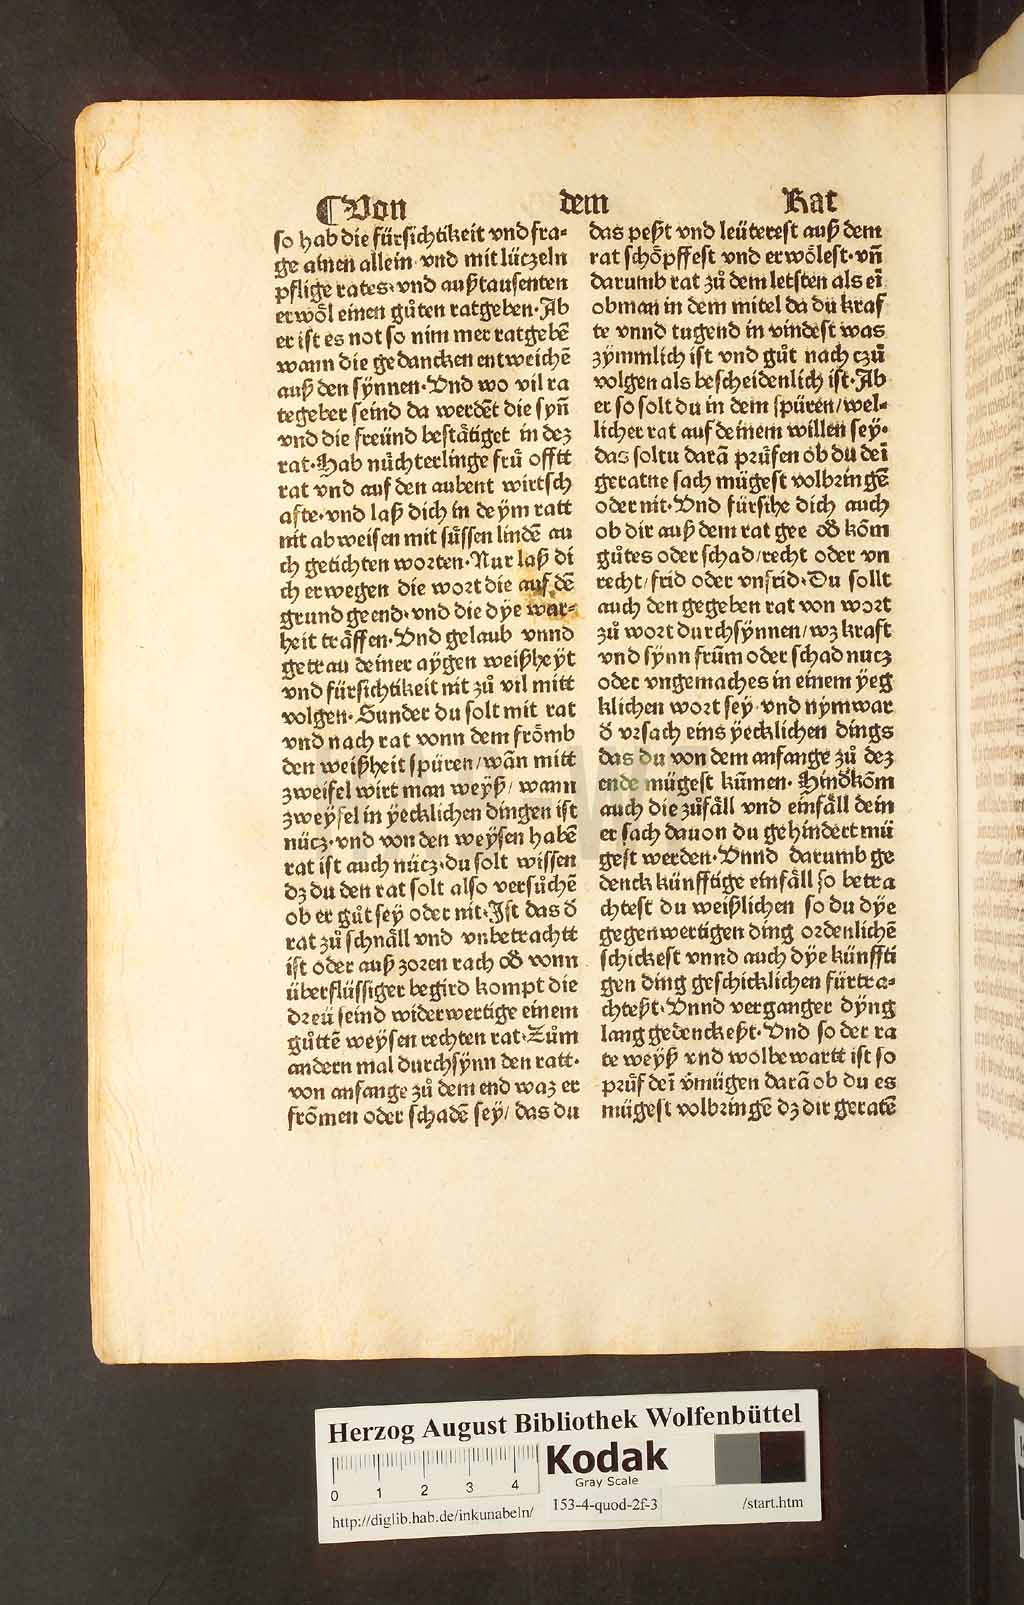 ¶Von dem Rat
so hab die fürsichtikeit vnd fra⸗
ge ainen allein· vnd mit lüczeln
pflige rates· vnd auß tausenten
erwoͤl einen guͦten ratgeben· Ab
er ist es not so nim mer ratgebē
wann die gedancken entweichē
auß den sÿnnen· Vnd wo vil ra
tegeber seind da werdēt die syn̄
vnd die freünd bestaͤtiget in dez
rat· Hab nuͤchterlinge fruͤ offtt
rat vnd auf den aubent wirtsch
afte· vnd laß dich in deÿm ratt
nit abweisen mit suͤssen lindē au
ch getichten worten· Nur laß di
ch erwegen die wort die auf dē
grund geend· vnd die dÿe war⸗
heit traͤffen· Vnd gelaub vnnd
getrau deiner aÿgen weißheÿt
vnd fürsichtikeit nit zuͦ vil mitt
volgen· Sunder du solt mit rat
vnd nach rat vonn dem froͤmb
den weißheit spüren/ wān mitt
zweifel wirt man weÿß/ wann
zweÿfel in ÿecklichen dingen ist
nücz· vnd von den weÿsen habē
rat ist auch nücz· du solt wissen
dz du den rat solt also versuͦchē
ob er guͦt seÿ oder nit· Ist das d̄
rat zuͦ schnaͤll vnd vnbetrachtt
ist oder auß zoren rach od̄ vonn
überflüssiger begird kompt die
dreü seind widerwertige einem
guͦttē weÿsen rechten rat· Zuͦm
andern mal durchsÿnn den ratt·
von anfange zuͦ dem end waz er
froͤmen oder schadē seÿ/ das du
das peßt vnd leüterest auß dem
rat schoͤpffest vnd erwoͤlest· vn̄
darumb rat zuͦ dem letsten als eī
obman in dem mitel da du kraf
te vnnd tugend in vindest was
zÿmmlich ist vnd guͦt nach czuͦ
volgen als bescheidenlich ist· Ab
er so solt du in dem spüren/ wel⸗
licher rat auf deinem willen seÿ·
das soltu darā pruͤfen ob du deī
geratne sach mügest volbringē
oder nit· Vnd fürsihe dich auch
ob dir auß dem rat gee od̄ kōm
guͦtes oder schad/ recht oder vn
recht/ frid oder vnfrid· Du sollt
auch den gegeben rat von wort
zuͦ wort durchsÿnnen/ wz kraft
vnd sÿnn frūm oder schad nucz
oder vngemaches in einem ÿeg
klichen wort seÿ· vnd nÿm war
d̄ vrsach eins ÿecklichen dings
das du von dem anfange zuͦ dez
ende mügest kūmen· Hind̄kōm
auch die zuͦfaͤll vnd einfaͤll dein
er sach dauon du gehindert mü
gest werden· Vnnd darumb ge
denck künfftige einfaͤll so betra
chtest du weißlichen so du dÿe
gegenwertigen ding ordenlichē
schickest vnnd auch dÿe künffti
gen ding geschicklichen fürtra⸗
chteßt· Vnnd verganger dÿng
lang gedenckeßt· Vnd so der ra
te weÿß vnd wolbewartt ist so
pruͤf deī v̄mügen darā ob du es
mügest volbringē dz dir geratē
Herzog August Bibliothek Wolfenbüttel
0 1 2 3 4
Kodak
Gray Scale
http://diglib.hab.de/inkunabeln/ 153-4-quod-2f-3 /start.htm